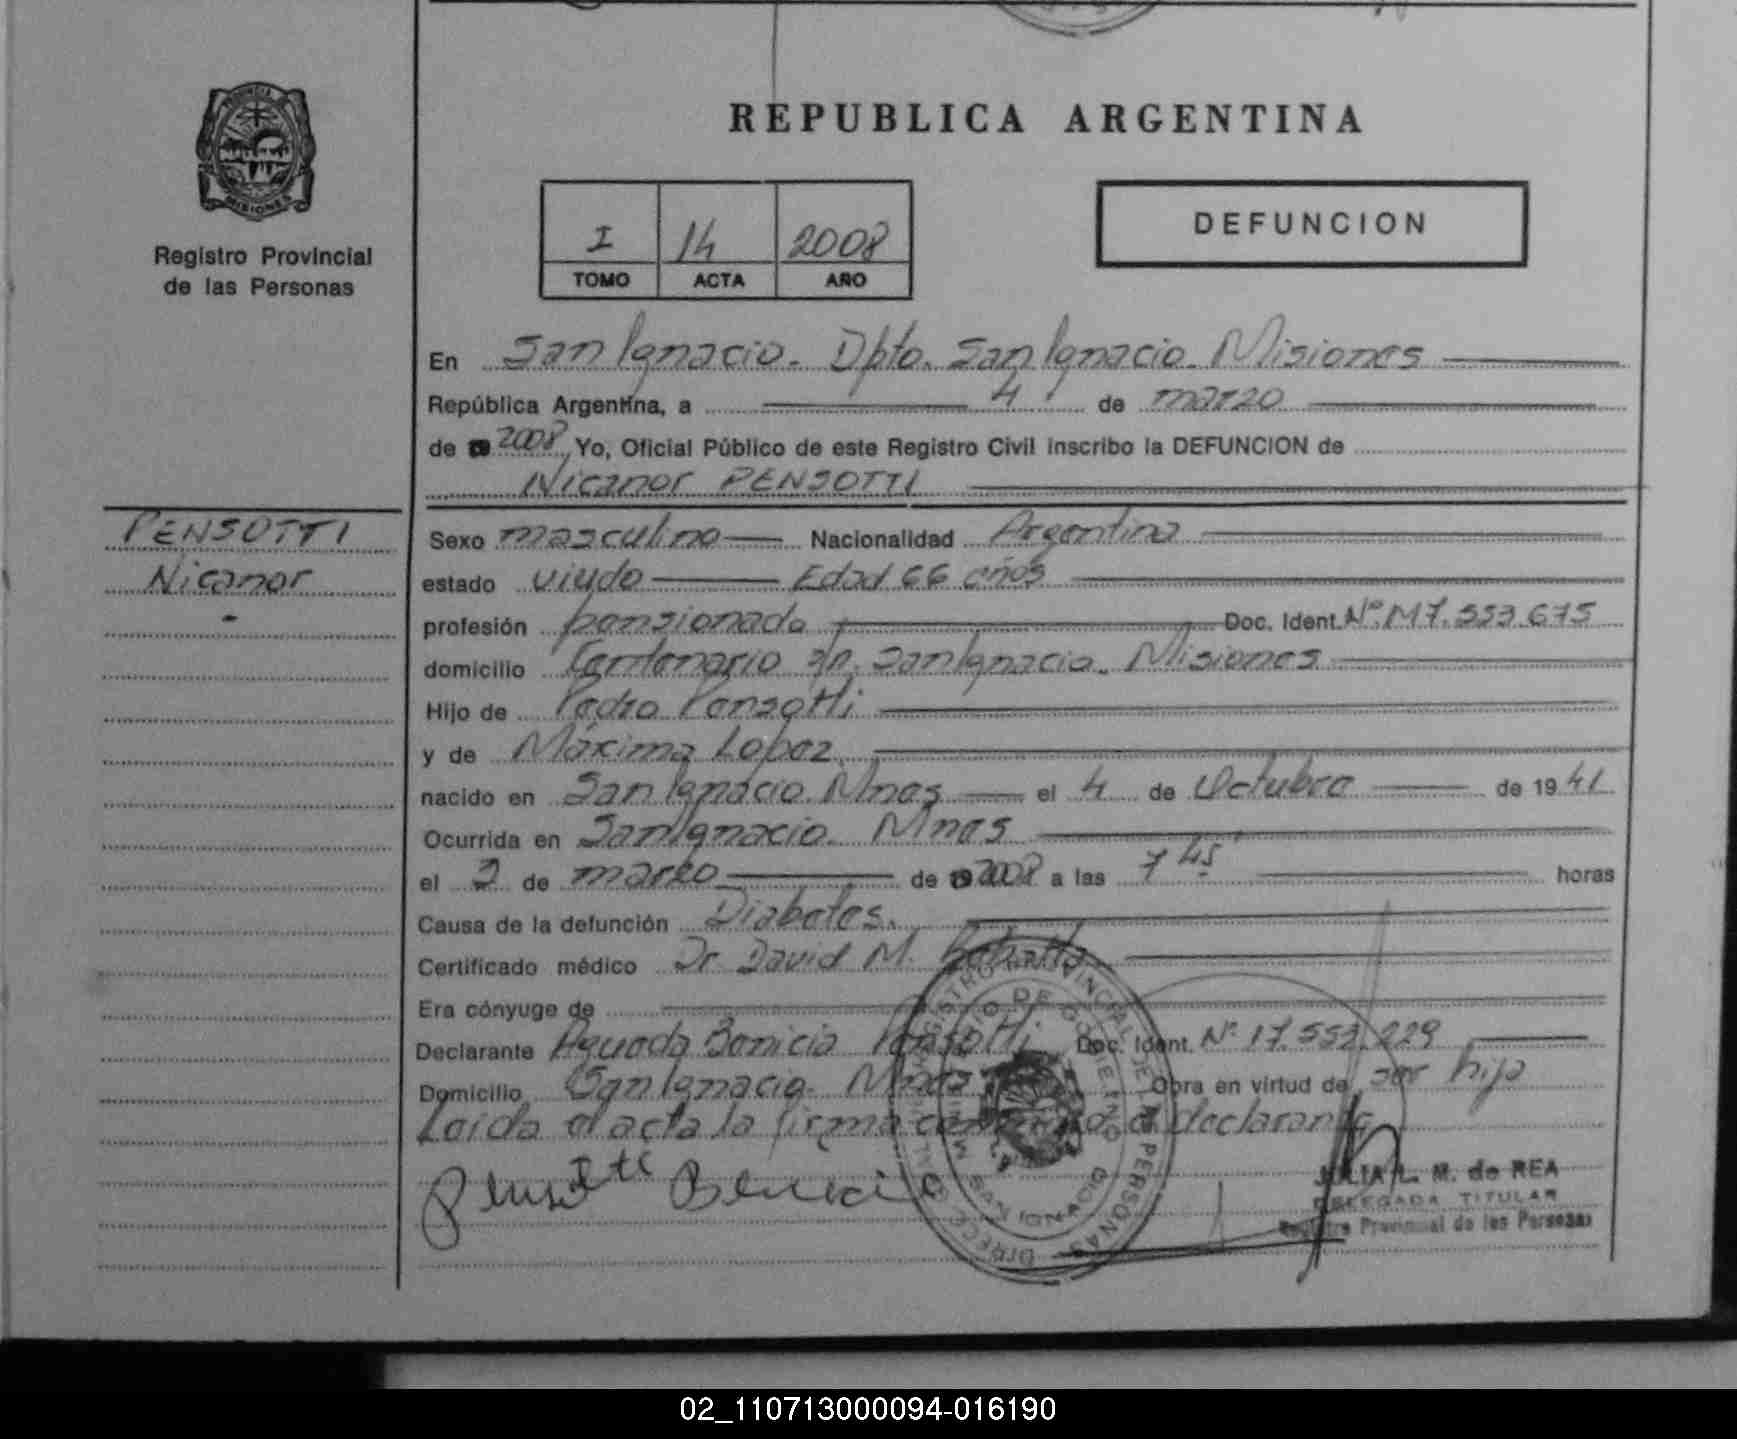 REPUBLICA ARGENTINA
PROVINCIA DE
MISIONES
Registro Provincial
de las Personas
I 14 2008
TOMO ACTA AÑO
DEFUNCION
En San Ignacio. Dpto. San Ignacio. Misiones
República Argentina, a 4 de marzo
de 2008 Yo, Oficial Público de este Registro Civil inscribo la DEFUNCION de
Nicanor PENSOTTI
PENSOTTI
Nicanor
-
Sexo masculino Nacionalidad Argentina
estado viudo Edad 66 años
profesión pensionado Doc. Ident. Nº M7.553.675
domicilio Centenario s/n. San Ignacio. Misiones
Hijo de Pedro Pensotti
y de Máxima Lopez
nacido en San Ignacio. Mnes el 4 de Octubre de 1941
Ocurrida en San Ignacio. Mnes
el 2 de marzo de 2008 a las 7 45 horas
Causa de la defunción Diabetes.
Certificado médico Dr. David M.
Era cónyuge de
Declarante Agueda Benicia Pensotti Doc. Ident. Nº 17.552.229
Domicilio San Ignacio. Mnes Obra en virtud de ser hija
Leida el acta la firma el declarante
Pensotti Benicia
JULIA L. M. de REA
DELEGADA TITULAR
Registro Provincial de las Personas
SAN IGNACIO
02_110713000094-016190